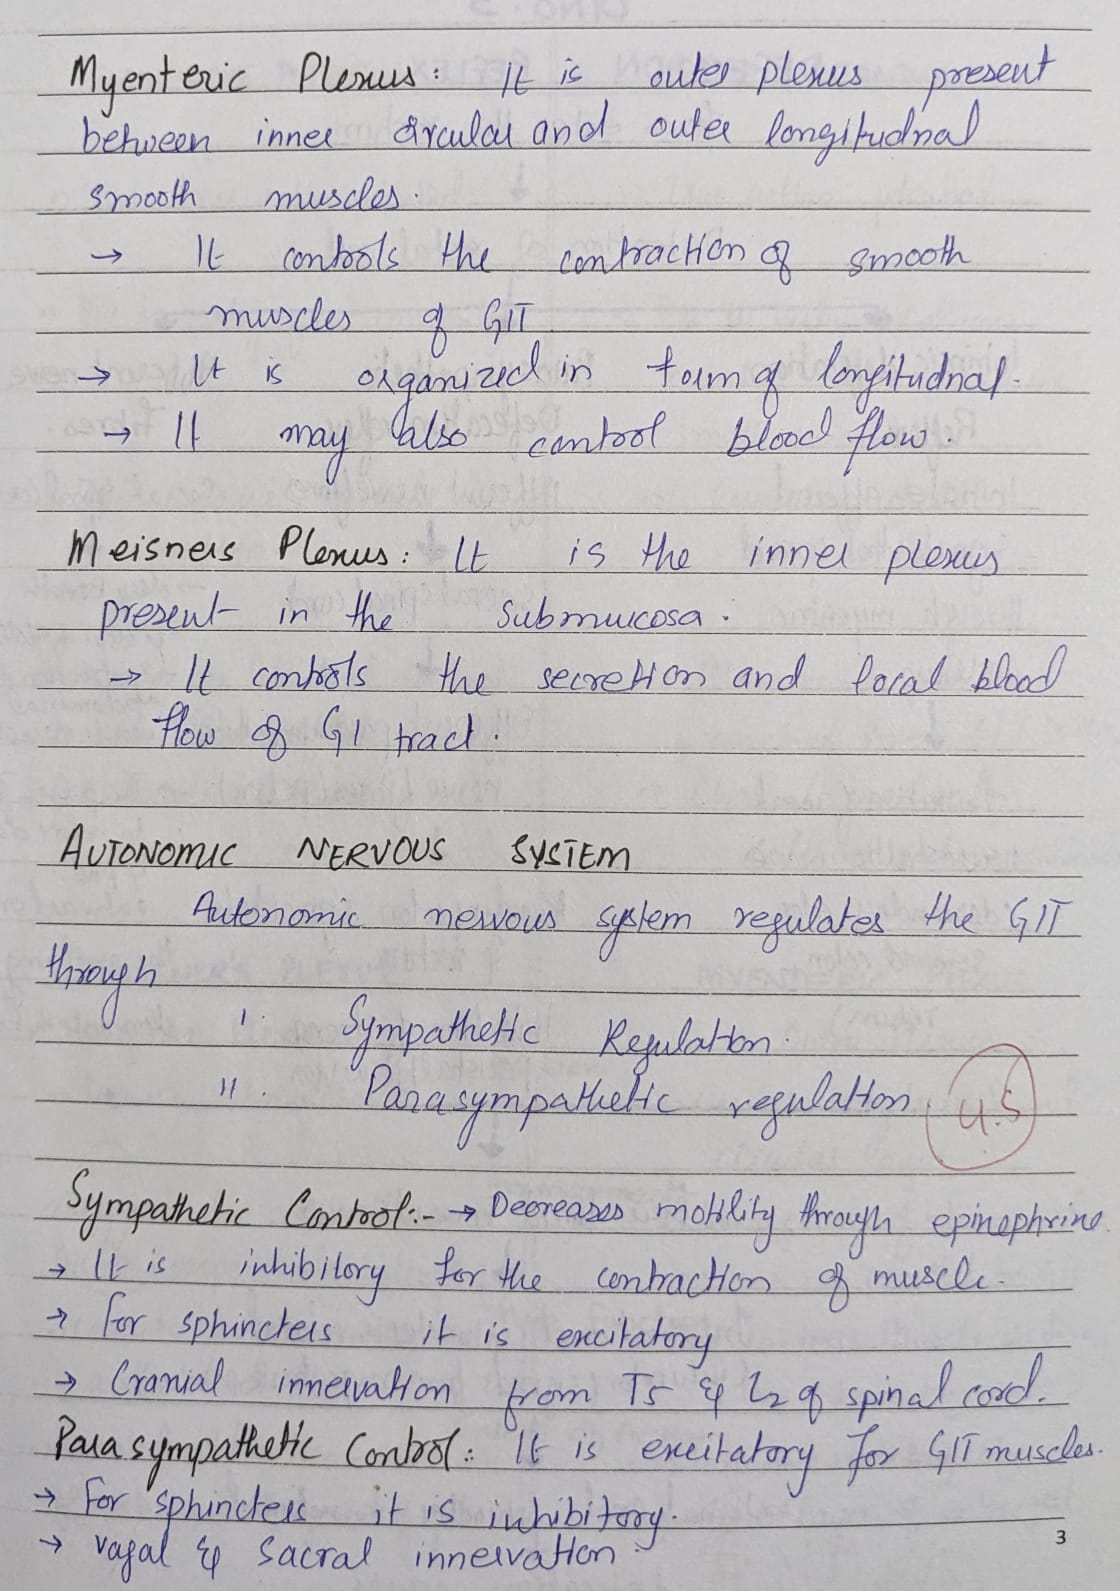 Myenteric Plexus: It is outer plexus present
between inner circular and outer longitudnal
smooth muscles.
→ It controls the contraction of smooth
muscles of GIT
→ It is organized in form of longitudnal.
→ It may also control blood flow.
Meisners Plexus: It is the inner plexus
present in the submucosa.
→ It controls the secretion and local blood
flow of GI tract.
AUTONOMIC NERVOUS SYSTEM
Autonomic nervous system regulates the GIT
through
I. Sympathetic Regulation.
II. Parasympathetic regulation.
4.5
Sympathetic Control:- → Decreases motility through epinephrine.
→ It is inhibitory for the contraction of muscle.
→ For sphincters it is excitatory
→ Cranial innervation from T5 & L2 of spinal cord.
Parasympathetic Control: It is excitatory for GIT muscles.
→ For sphincters it is inhibitory.
→ vagal & sacral innervation.
3